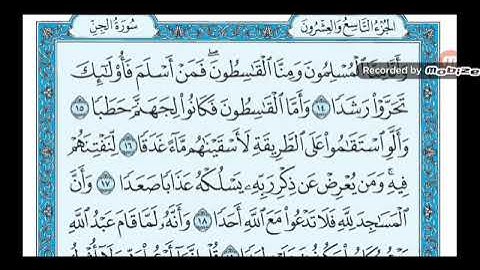 الجُزْءُ التَّاسِعُ وَالعِشْرُونَ
سُورَةُ الجِنِّ
Recorded by Mobizen
الْمُسْلِمُونَ وَمِنَّا الْقَاسِطُونَ ۖ فَمَنْ أَسْلَمَ فَأُولَٰئِكَ
تَحَرَّوْا رَشَدًا ١٤ وَأَمَّا الْقَاسِطُونَ فَكَانُوا لِجَهَنَّمَ حَطَبًا ١٥
وَأَلَّوِ اسْتَقَامُوا عَلَى الطَّرِيقَةِ لَأَسْقَيْنَاهُم مَّاءً غَدَقًا ١٦ لِّنَفْتِنَهُمْ
فِيهِ ۚ وَمَن يُعْرِضْ عَن ذِكْرِ رَبِّهِ يَسْلُكْهُ عَذَابًا صَعَدًا ١٧ وَأَنَّ
الْمَسَاجِدَ لِلَّهِ فَلَا تَدْعُوا مَعَ اللَّهِ أَحَدًا ١٨ وَأَنَّهُ لَمَّا قَامَ عَبْدُ اللَّهِ